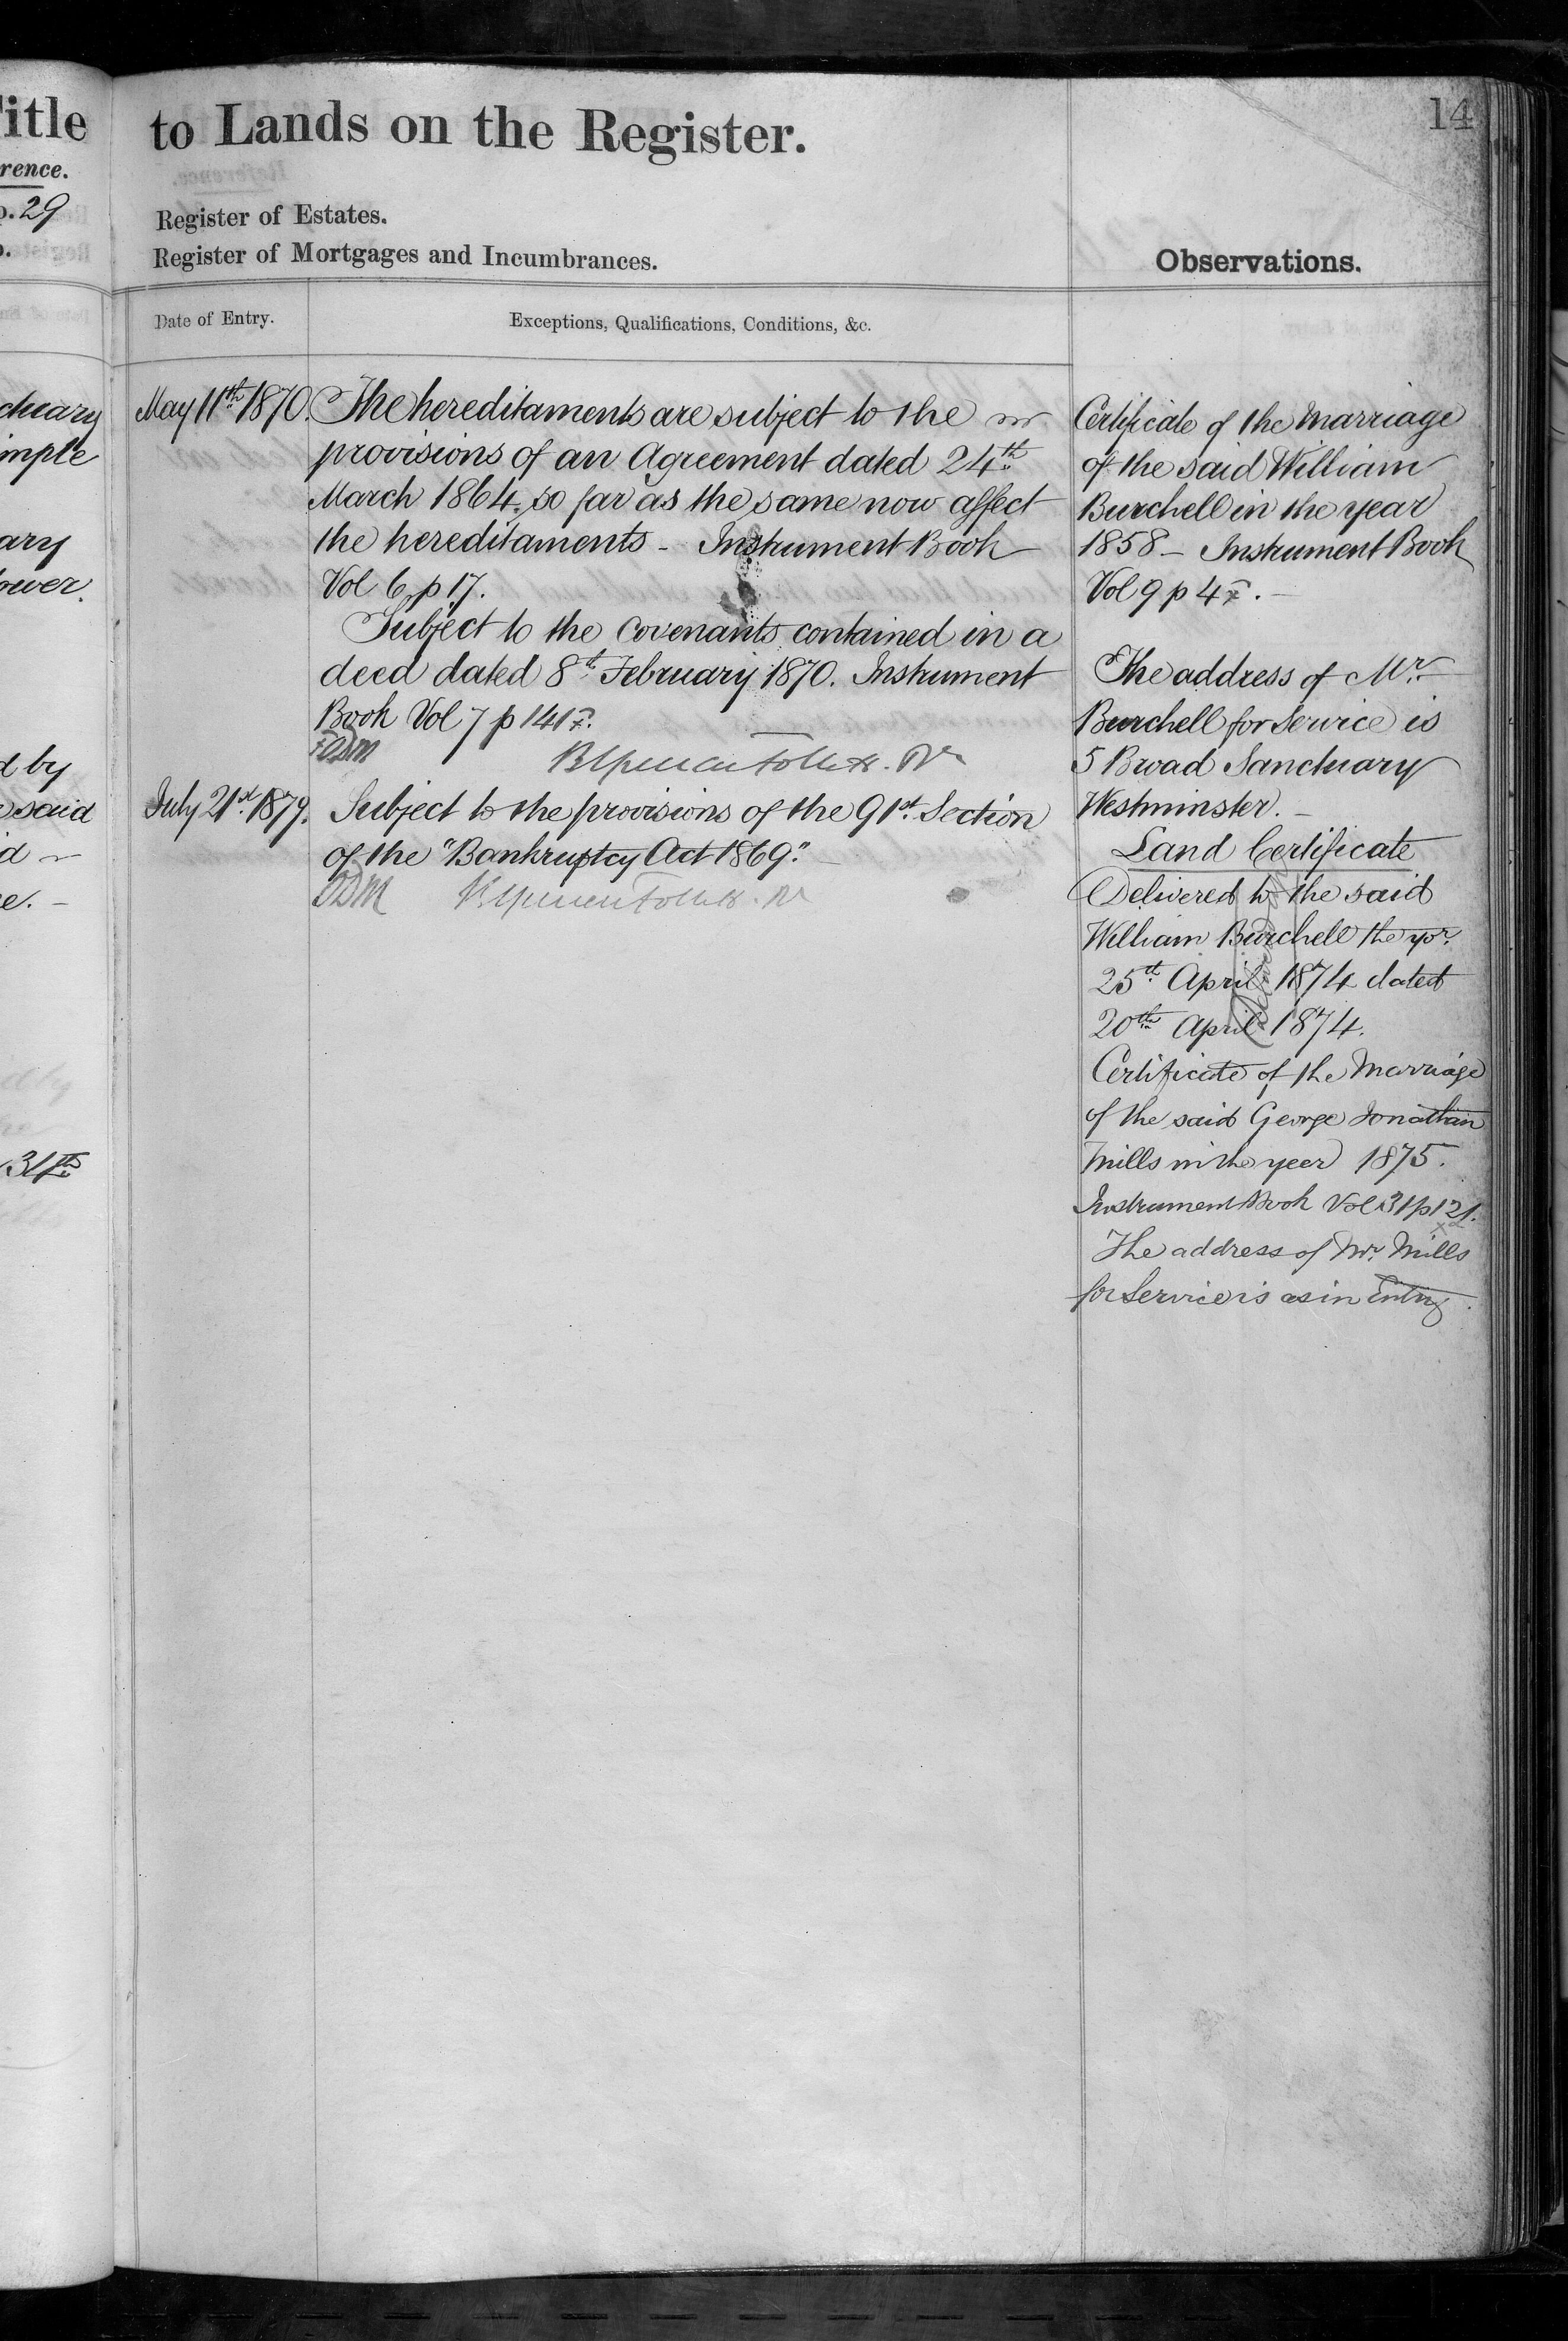 14
Title
to Lands on the Register.
rence.
p. 29
p.
Register of Estates.
Register of Mortgages and Incumbrances.
Observations.
Date of Entry.
Exceptions, Qualifications, Conditions, &c.
May 11th 1870.
The hereditaments are subject to the
provisions of an Agreement dated 24th
March 1864, so far as the same now affect
the hereditaments - Instrument Book
Vol 6, p 17.
Subject to the covenants contained in a
deed dated 8th February 1870. Instrument
Book Vol 7 p 141
ODM
July 21st 1879.
Subject to the provisions of the 91st Section
of the "Bankruptcy Act 1869".
ODM
Certificate of the Marriage
of the said William
Burchell in the year
1858 - Instrument Book
Vol 9 p 4
The address of Mr
Burchell for Service is
5 Broad Sanctuary
Westminster. -
Land Certificate
Delivered to the said
William Burchell the yor
25th April 1874 dated
20th April 1874.
Certificate of the Marriage
of the said George Jonathan
Mills in the year 1875.
Instrument Book Vol 31 p 121.
The address of Mr Mills
for Service is as in Entry.
ctuary
imple
ary
ower.
d by
said
id
e. -
31st